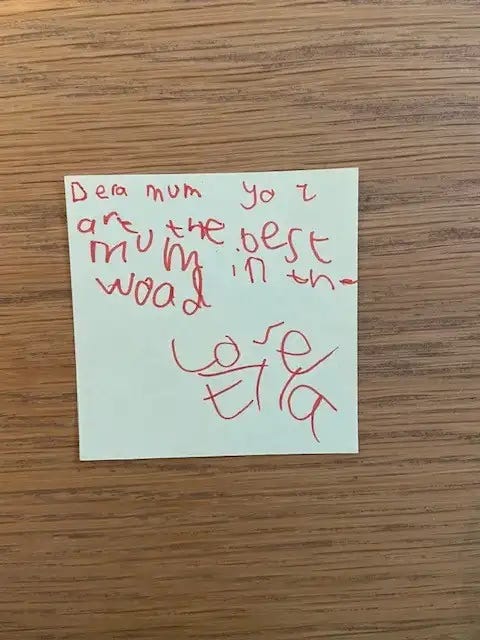 Dera mum yor
are the best
mum in the
woad
Love
Ella